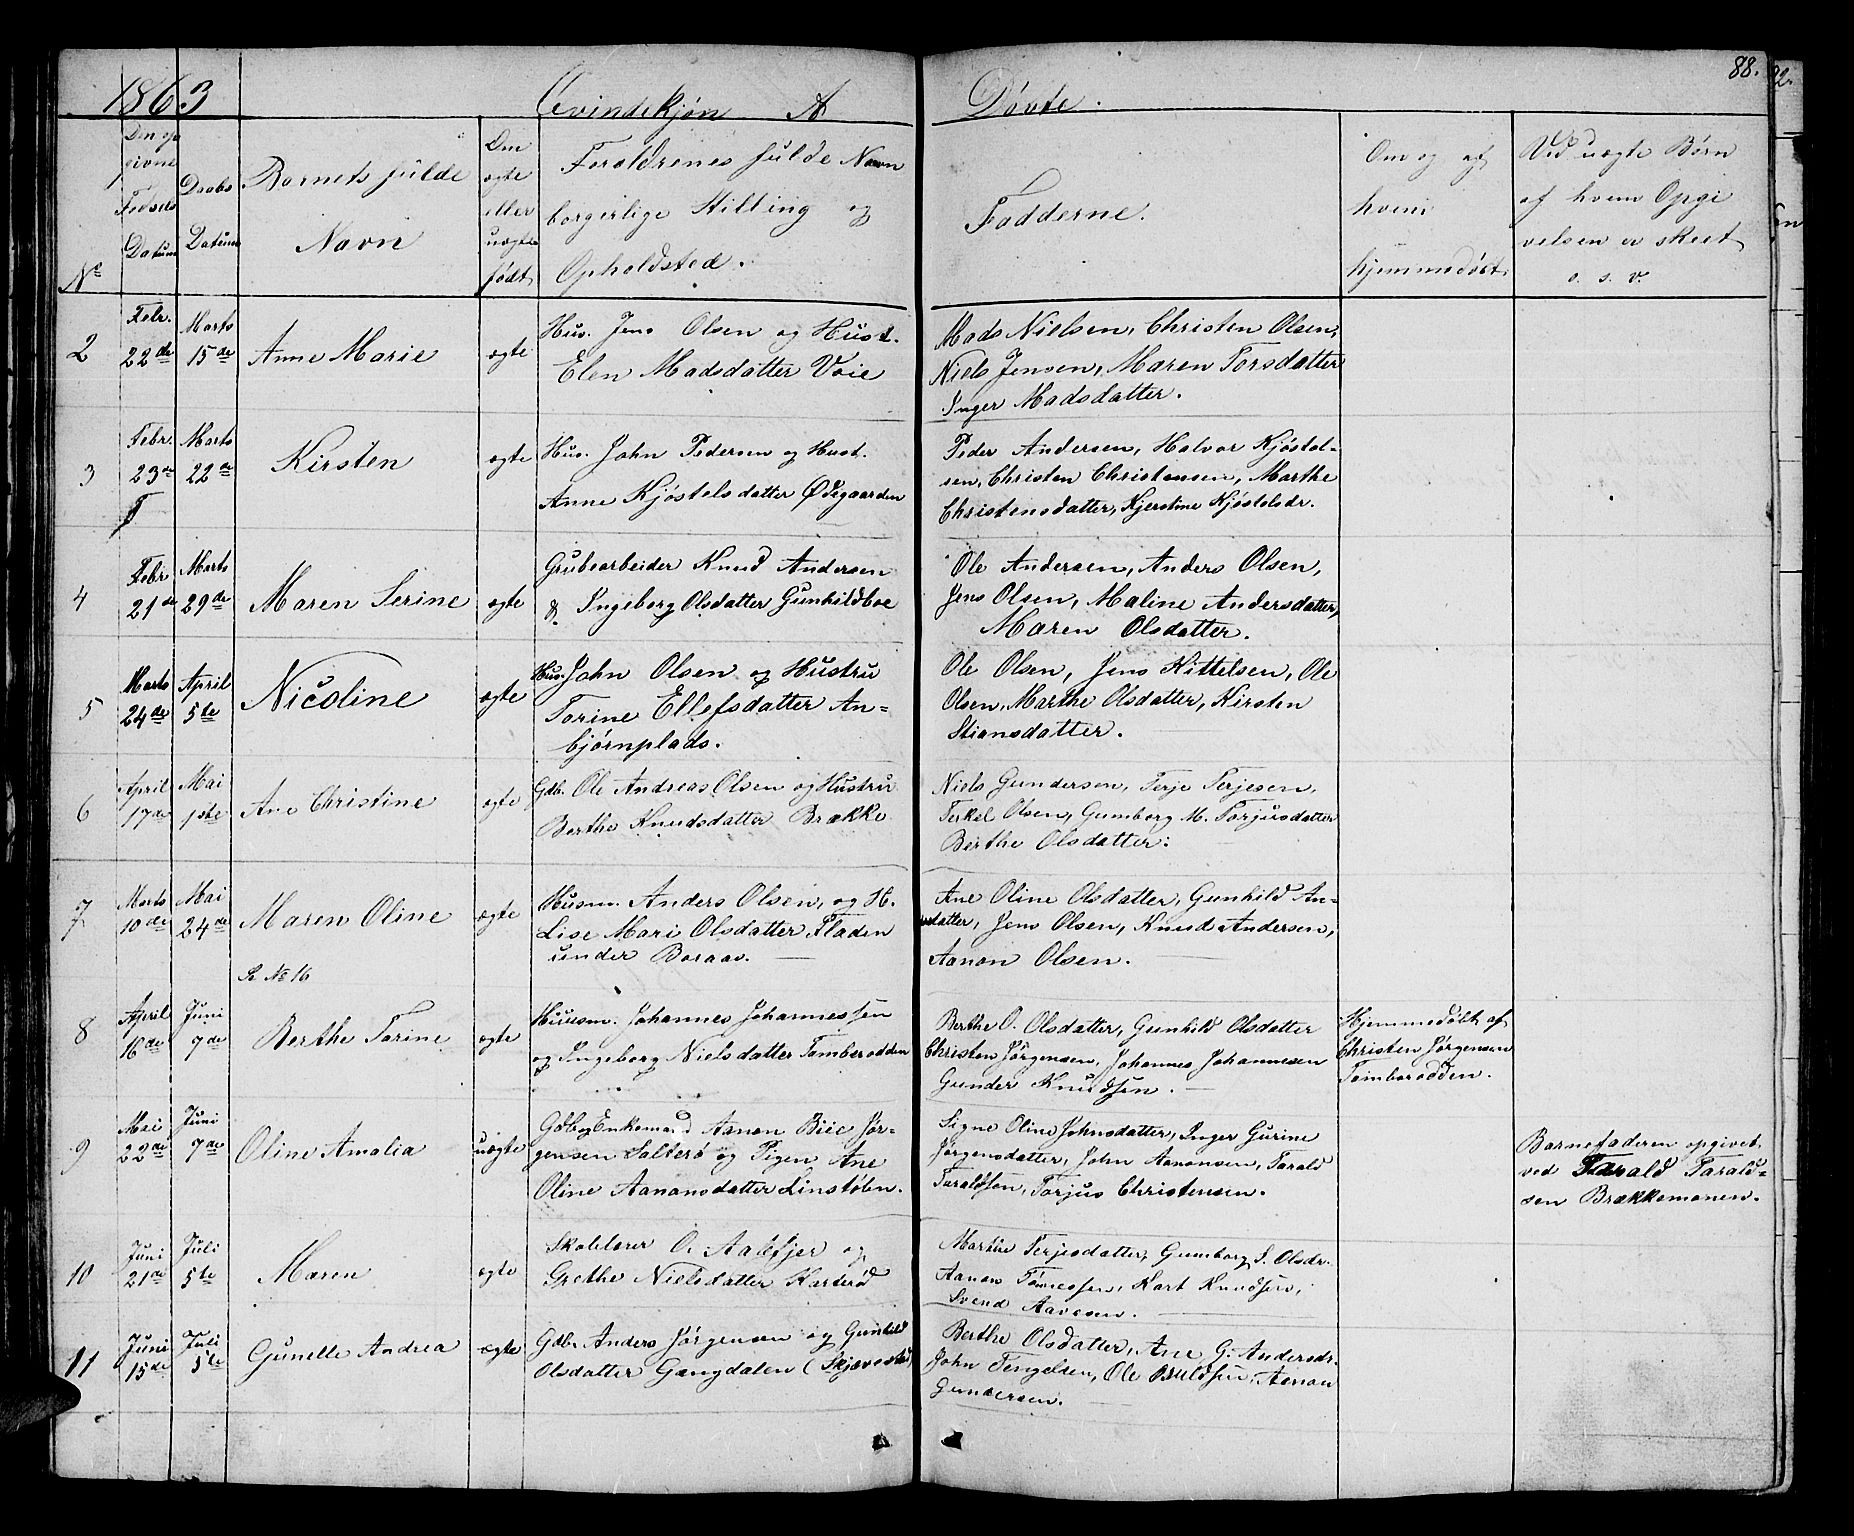 1863 Qvindekjøn A Døvte. 88.
No
Den op
givne
Fødsels
Datum
Daabs
Datum
Barnets fulde
Navn
Om
ægte
eller
uægte
født
Forældrenes fulde Navn
borgerlige Stilling og
Opholdsted.
Fadderne.
Om og af
hvem
hjemmedøbt
Ved uægte Børn
af hvem Opgi
velsen er skeet
o. s. v.
2 Febr. 22de Marts 15de Anne Marie ægte
Hus. Jens Olsen og Hust.
Elen Madsdatter Voie
Mads Nielsen, Christen Olsen,
Niels Jensen, Maren Torsdatter
Inger Madsdatter.
3 Febr. 23de Marts 22de Kirsten ægte
Hus. John Pedersen og Hust.
Anne Kjøstelsdatter Ødegaarden
Peder Andersen, Halvor Kjøstol-
sen, Christen Christensen, Marthe
Christensdatter, Kjerstine Kjøstolsdr.
4 Febr 21de Marts 29de Maren Serine ægte
Grubearbeider Knud Andersen
& Ingeborg Olsdatter Gunhildboe
Ole Andersen, Anders Olsen,
Jens Olsen, Maline Andersdatter,
Maren Olsdatter.
5 Marts 24de April 5te Nicoline ægte
Hus. John Olsen og Hustru
Torine Ellefsdatter An-
bjørnplads.
Ole Olsen, Jens Kittelsen, Ole
Olsen, Marthe Olsdatter, Kirsten
Stiansdatter.
6 April 17de Mai 1ste Ane Christine ægte
Gdb. Ole Andreas Olsen og Hustru
Berthe Knudsdatter Brække
Niels Gundersen, Terje Terjesen,
Terkel Olsen, Gumborg M. Torjusdatter
Berthe Olsdatter.
7 Marts 10de Mai 24de Maren Oline ægte
Se No 16
Husm. Anders Olsen, og H.
Lise Mari Olsdatter Fladen
under Boraas.
Ane Oline Olsdatter, Gunhild An-
datter, Jens Olsen, Knud Andersen,
Aanon Olsen.
8 April 16de Juni 7de Berthe Torine ægte
Huusm. Johannes Johannessen
og Ingeborg Nielsdatter Tomberodden
Berthe O. Olsdatter, Gunhild Olsdatter
Christen Jørgensen, Johannes Johannesen
Gunder Knudsen.
Hjemmedøbt af
Christen Jørgensen
Tomberodden.
9 Mai 22de Juni 7de Oline Amalia uægte
Gdb og Enkemand Aanon Biie Jør-
gensen Salterø og Pigen Ane
Oline Aanonsdatter Linstølen.
Signe Oline Johnsdatter, Inger Gurine
Jørgensdatter, John Aanonsen, Tarald
Taraldsen, Torjus Christensen.
Barnefaderen opgivet
ved Tarald Tarald-
sen Brækkemonen.
10 Juni 21de Juli 5te Maren ægte
Skolelærer O. Aalefjer og
Grethe Nielsdatter Karterød
Marthe Terjesdatter, Gumborg S. Olsdr.
Aanon Tønnessen, Kart Knudsen,
Svend Aavesen.
11 Juni 15de Juli 5te Gunelle Andrea ægte
Gdb. Anders Jørgensen og Gunhild
Olsdatter Gangdalen (Skjævested)
Berthe Olsdatter, Ane G. Andersdr.
John Tengelsen, Ole Osuldsen, Aanon
Gundersen.